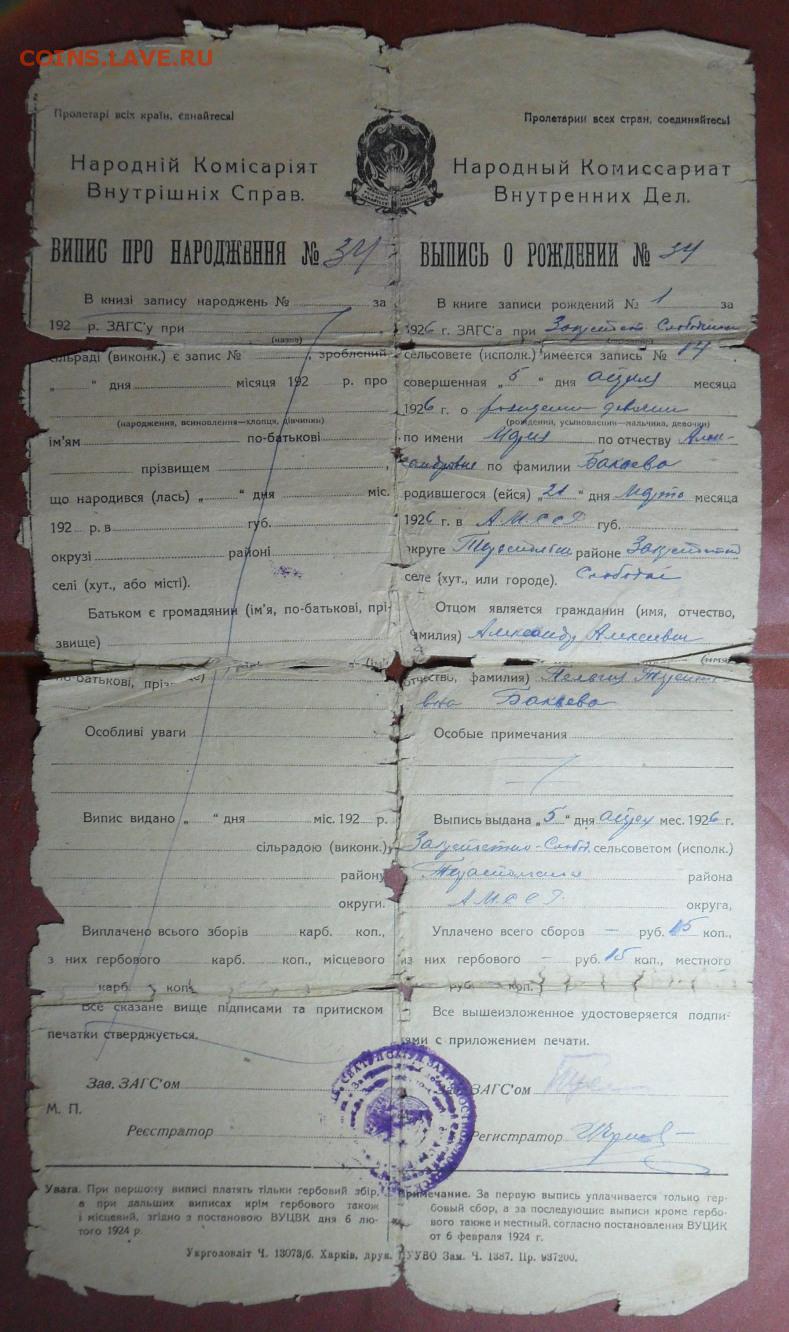 COINS.LAVE.RU
Пролетарі всіх країн, єднайтеся!
Народній Комісаріят
Внутрішніх Справ.
ВИПИС ПРО НАРОДЖЕННЯ № 34
В книзі запису народжень № за
192 р. ЗАГС'у при
(назва)
сільраді (виконк.) є запис № , зроблений
„ “ дня місяця 192 р. про
(народження, всиновлення—хлопця, дівчинки)
ім'ям по-батькові
прізвищем ,
що народився (лась) „ “ дня міс.
192 р. в губ.
окрузі районі
селі (хут., або місті).
Батьком є громадянин (ім'я, по-батькові, прі-
звище)
по-батькові,
Особливі уваги
Випис видано „ “ дня міс. 192 р.
сільрадою (виконк.)
району
округи.
Виплачено всього зборів карб. коп.,
з них гербового карб. коп., місцевого
карб. коп.
Все сказане вище підписами та притиском
печатки стверджується.
Зав. ЗАГС'ом
М. П.
Реєстратор
Увага. При першому виписі платять тільки гербовий збір,
а при дальших виписах крім гербового також
і місцевий, згідно з постановою ВУЦВК дня 6 лю-
того 1924 р.
Пролетарии всех стран, соединяйтесь!
Народный Комиссариат
Внутренних Дел.
ВЫПИСЬ О РОЖДЕНИИ № 34
В книге записи рождений № 1 за
1926 г. ЗАГС'а при
сельсовете (исполк.) имеется запись № 14 ,
совершенная „5“ дня месяца
1926 г. о
(рождении, усыновлении—мальчика, девочки)
по имени Мария по отчеству Алек-
сандровне по фамилии Бакаева
родившегося (ейся) „21“ дня Марта месяца
1926 г. в А.М.ССР губ.
округе районе
селе (хут., или городе). Слободзя
Отцом является гражданин (имя, отчество,
фамилия) Александр Алексеевич
(имя,
отчество, фамилия)
Бакаева
Особые примечания
Выпись выдана „5“ дня мес. 1926 г.
сельсоветом (исполк.)
района
А.М.ССР округа,
Уплачено всего сборов — руб. 15 коп.,
из них гербового — руб. 15 коп., местного
руб. коп.
Все вышеизложенное удостоверяется подпи-
сями с приложением печати.
ЗАГС'ом
Регистратор
Примечание. За первую выпись уплачивается только гер-
бовый сбор, а за последующие выписи кроме гербо-
вого также и местный, согласно постановления ВУЦИК
от 6 февраля 1924 г.
Укрголовліт Ч. 13073/б. Харків, друк. ПУУВО Зам. Ч. 1387. Пр. 937200.